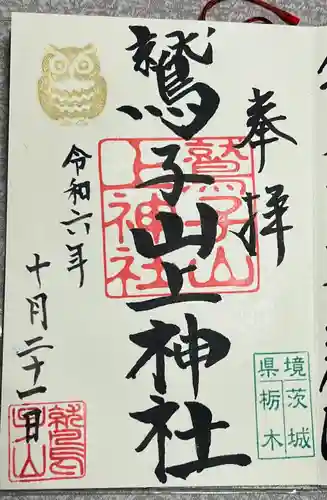 奉拝
鷲子山上神社
令和六年
十月二十一日
鷲子山
上神社
境茨城
県栃木